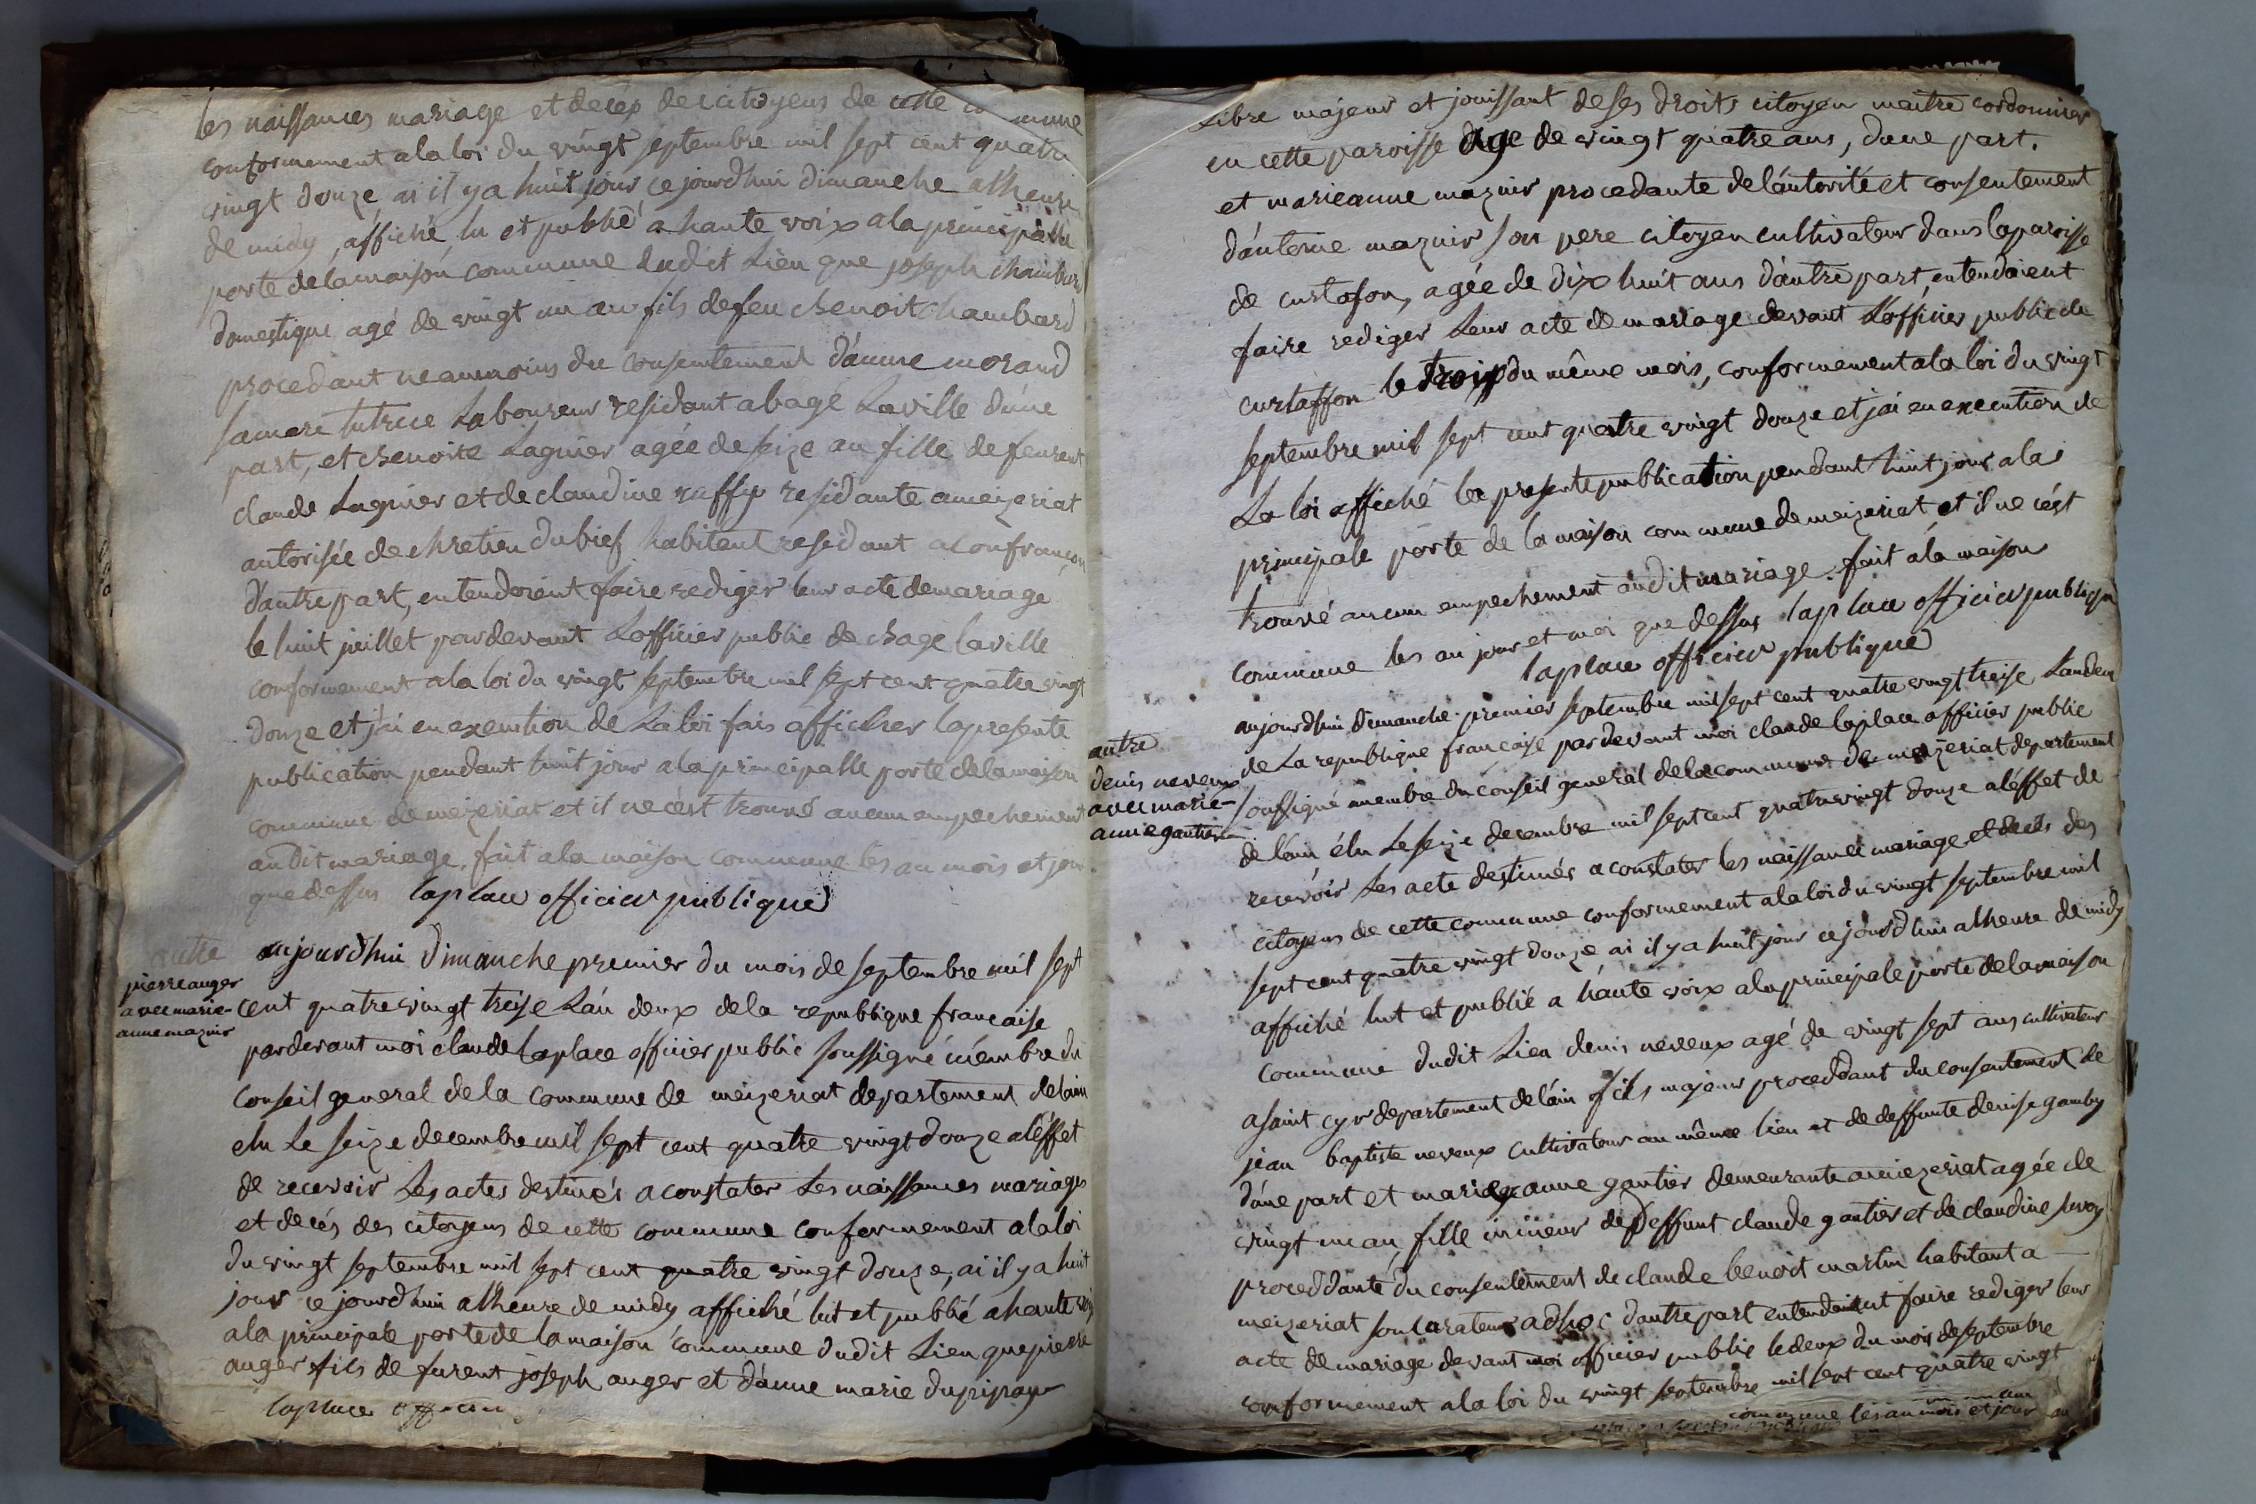 les naissances mariage et decex des citoyens de cette commune
conformement a la loi du vingt septembre mil sept cent quatre
vingt douze ai il y a huit jour ce jourdhui dimanche alheure
de midy, affiché lu et publié a haute voix a la principalle
porte de la maison commune dudit Lieu que joseph chambard
domestique agé de vingt un an fils de feu benoit chambard
procedant neanmoins du consentement d'anne morand
sa mere tutrice Laboureur residant a bagé Laville d'une
part, et benoite Lagnier agée de seize an fille de feurent
claude Lagnier et de claudine ruffy residante a meizeriat
autorisée de chretien dubief habitent residant a confrançon
d'autre part, entendoient faire rediger leur acte de mariage
le huit juillet par devant Lofficier public de bage laville
conformement a la loi du vingt septembre mil sept cent quatre vingt
douze et j'ai en execution de La loi fais afficher la presente
publication pendant huit jour a la principalle porte de la maison
commune de meizeriat et il ne cést trouvé aucun empechement
au dit mariage. fait a la maison commune les an mois et jour
que dessus laplace officier publique
autre
pierre auger
avec marie-
anne mazuir
aujourdhui dimanche premier du mois de septembre mil sept
cent quatre vingt treise L'an deux de la republique francaise
pardevant moi claude Laplace officier public soussigné membre du
conseil general de la commune de meizeriat departement de lain
elu Le seize decembre mil sept cent quatre vingt douze a léffet
de recevoir Les actes destinés a constater Les naissances mariages
et decés des citoyens de cette commune conformement a la loi
du vingt septembre mil sept cent quatre vingt douze, ai il y a huit
jour ce jourdhui alheure de midy affiché lut et publié a haute voix
a la principale porte de la maison commune dudit Lieu que pierre
auger fils de furent joseph auger et d'anne marie dupipay
laplace officier
Libre majeur et jouissant de ses droits citoyen maitre cordonnier
en cette paroisse age de vingt quatre ans, dune part.
et marieanne mazuir procedante de láutorité et consentement
d'antoine mazuir son pere citoyen cultivateur dans la paroisse
de curtafon, agée de dix huit ans d'autre part, entendoient
faire rediger Leur acte de mariage devant L'officier public de
curtaffon le trois du même mois, conformement a la loi du vingt
septembre mil sept cent quatre vingt douze et j'ai en execution de
La loi affiché la presente publication pendant huit jour a la
principale porte de la maison commune de meizeriat, et il ne cést
trouvé aucun empechement audit mariage. fait a la maison
commune les an jour et moi que dessus laplace officier publique
laplace officier publique
autre
denis neveux
avec marie-
anne gautier
aujourdhui dimanche premier septembre mil sept cent quatre vingt treise Landeux
de La republique francaise par devant moi claude laplace officier public
soussigné membre du conseil general de la commune de meizeriat departement
de láin élu Le seize decembre mil sept cent quatre vingt douze a léffet de
recevoir Les acte destinés a constater les naissance mariage et decés des
citoyens de cette commune conformement a la loi du vingt septembre mil
sept cent quatre vingt douze ai il y a huit jour ce jourdhui alheure de midy
affiché lut et publié a haute voix a la principale porte de la maison
commune dudit Lieu denis neveux agé de vingt sept ans cultivateur
a saint cyr departement de láin fils majeur proceddant du consentement de
jean baptiste neveux cultivateur au même lieu et de deffunte denise gamby
d'une part et marie anne gautier demeurante a meizeriat agée de
vingt un an, fille mineur de deffunt claude gautier et de claudine
proceddante du consentement de claude benoit martin habitant a
meizeriat son curateur adhoc d'autre part entendoient faire rediger leur
acte de mariage devant moi officier public le deux du mois de septembre
conformement a la loi du vingt septembre mil sept cent quatre vingt
commune les an mois et jour